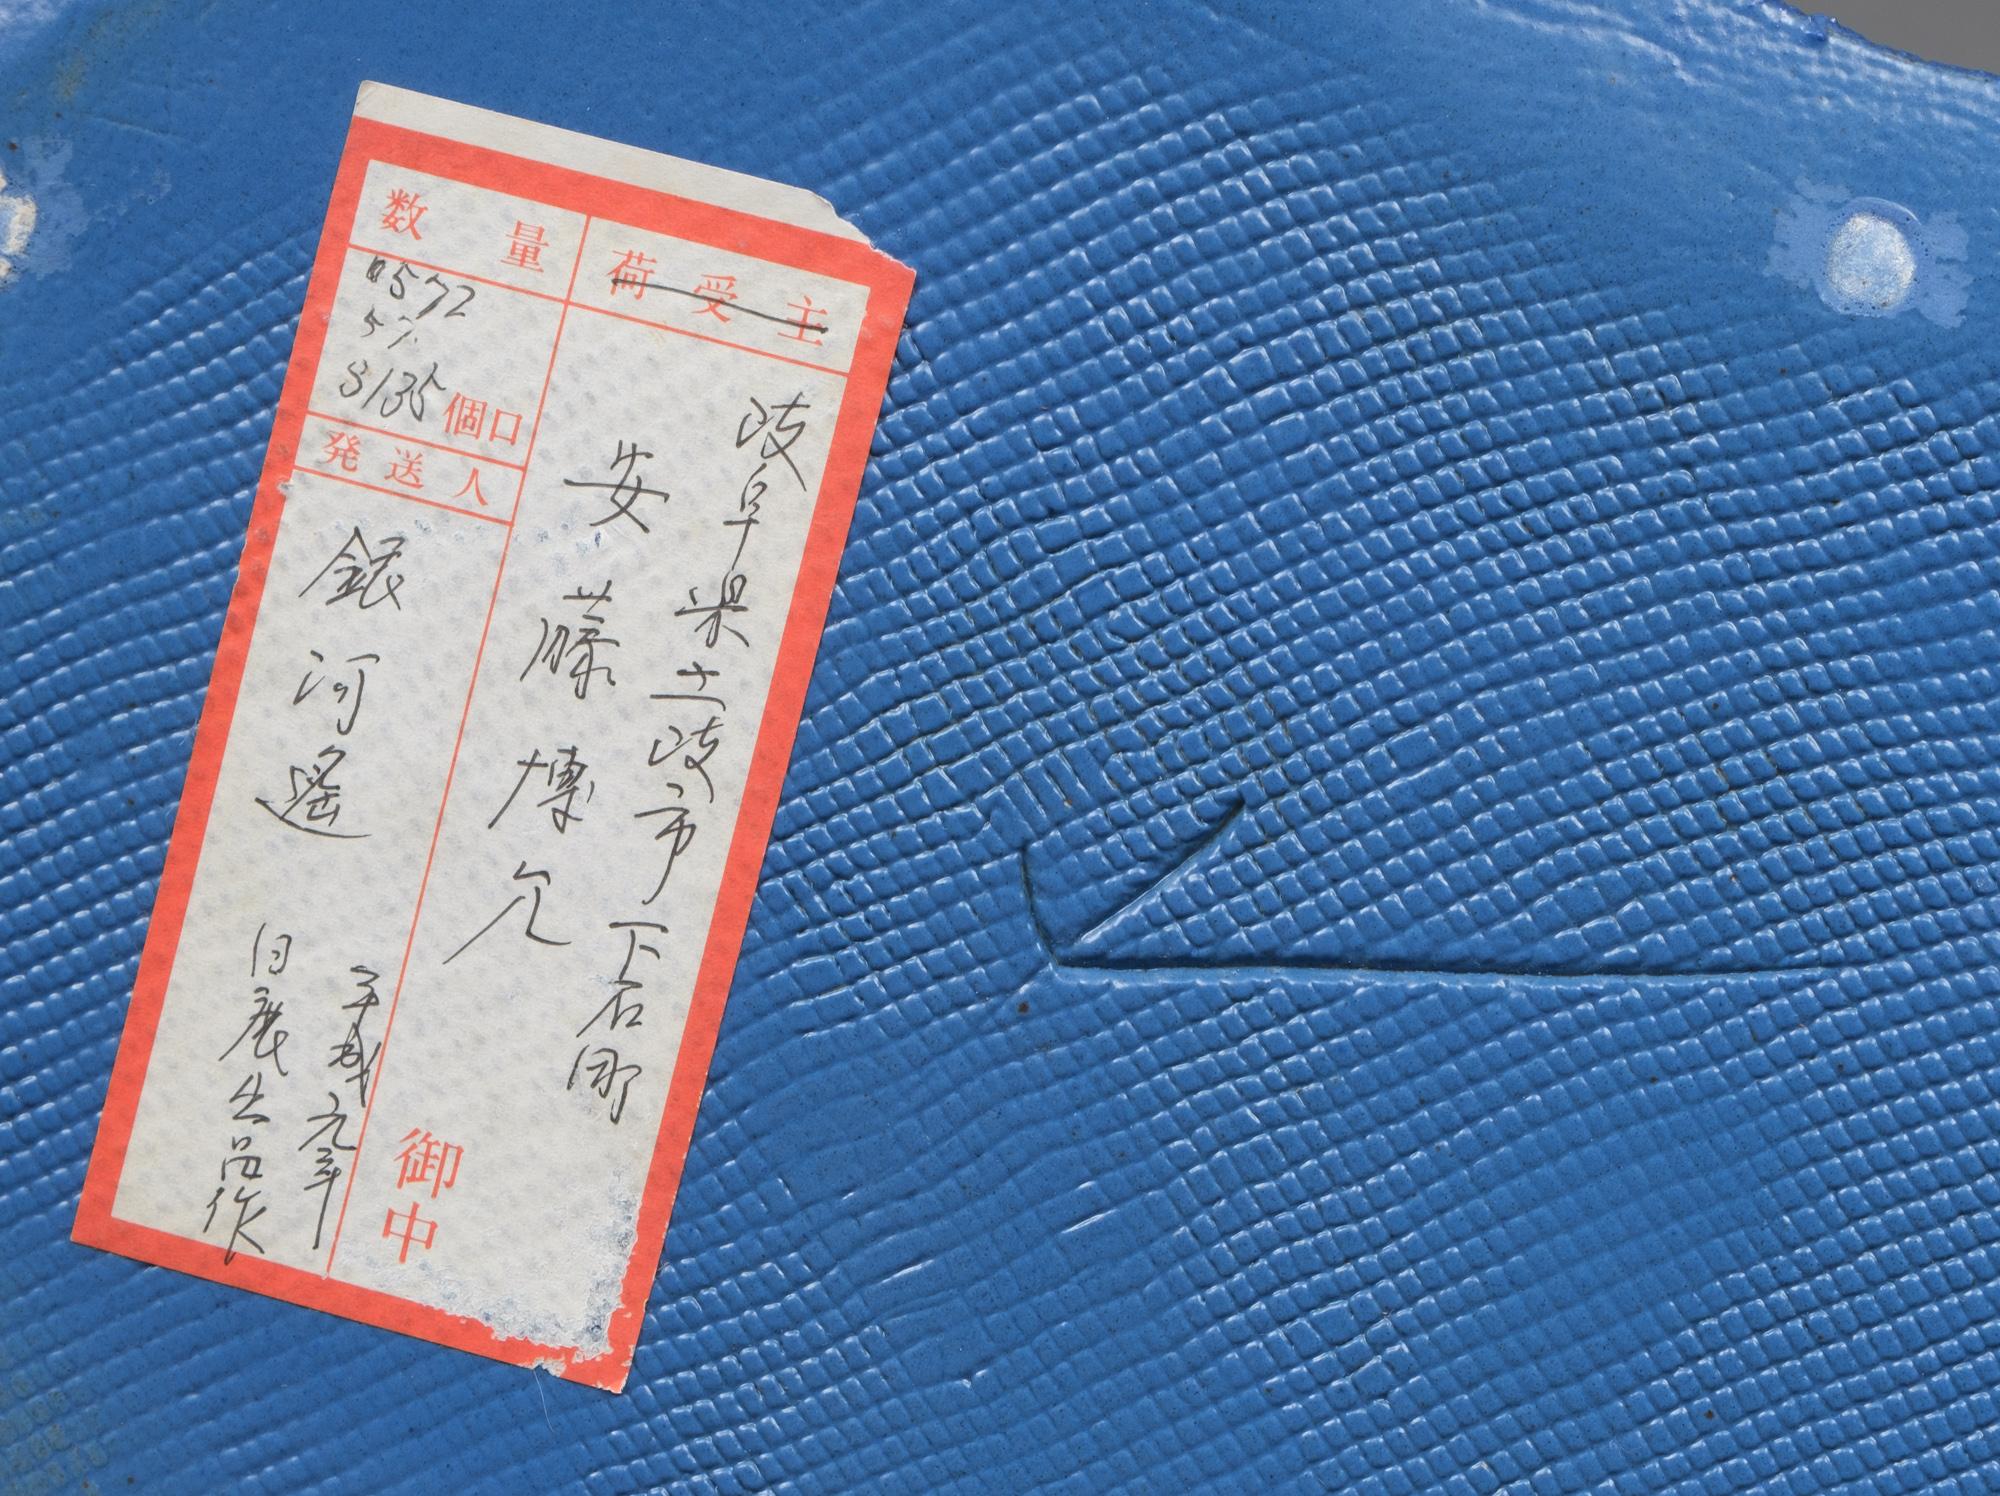 荷受主
岐阜県土岐市下石町
安藤博允
御中
数量
0572
57.
8135
個口
発送人
銀河遙
平成元年
日展出品作